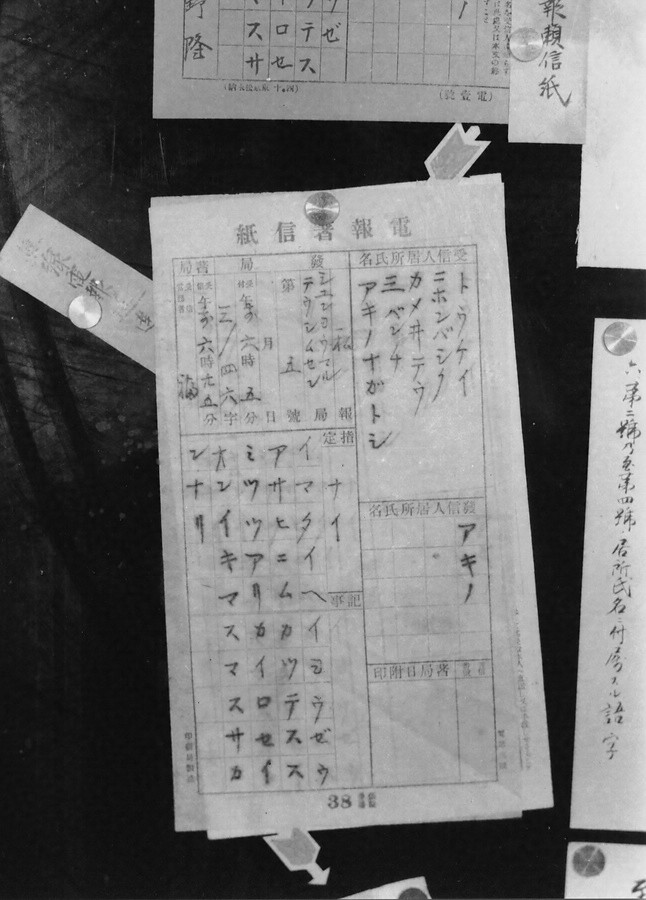 報頼信紙
野隆
電報著信紙
受信人居所氏名
トウケイ
ニホンバシク
カメ井テウ
三バンチ
アキノナガトシ
發信人居所氏名
アキノ
著局日附印
發局
シユンヨウマル
テウシムセン
第 五 號
月 日
午前 六時 五分
三/四六 字
著局
午前 六時 九五分
指定
ナイ
記事
イマタイヘイヨウゼウ
アサヒニムカツテスス
ミツツアリカイロセイ
オンイキマスマスサカ
ンナリ
38
六、第二號乃至第四號ノ居所氏名ニ付属スル語字